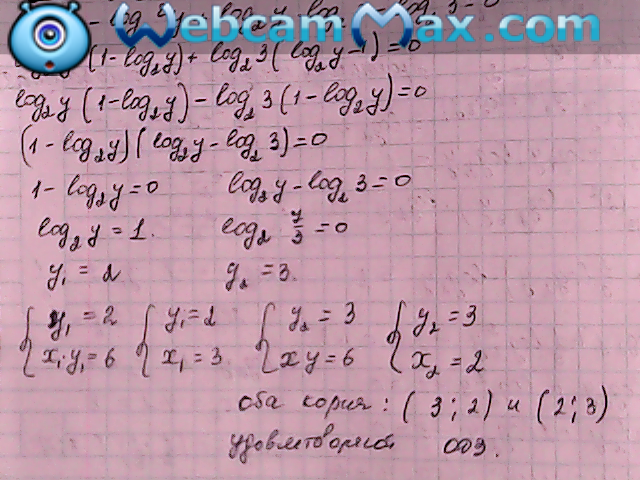 WebcamMax.com
(1 - log₂y) + log₂3 (log₂y - 1) = 0
log₂y (1 - log₂y) - log₂3 (1 - log₂y) = 0
(1 - log₂y)(log₂y - log₂3) = 0
1 - log₂y = 0 log₂y - log₂3 = 0
log₂y = 1. log₂ y/3 = 0
y₁ = 2 y₂ = 3.
{ y₁ = 2 { y₁ = 2 { y₂ = 3 { y₂ = 3
x₁·y₁ = 6 x₁ = 3 xy = 6 x₂ = 2
оба корня: (3; 2) и (2; 3)
удовлетворяют ОДЗ.